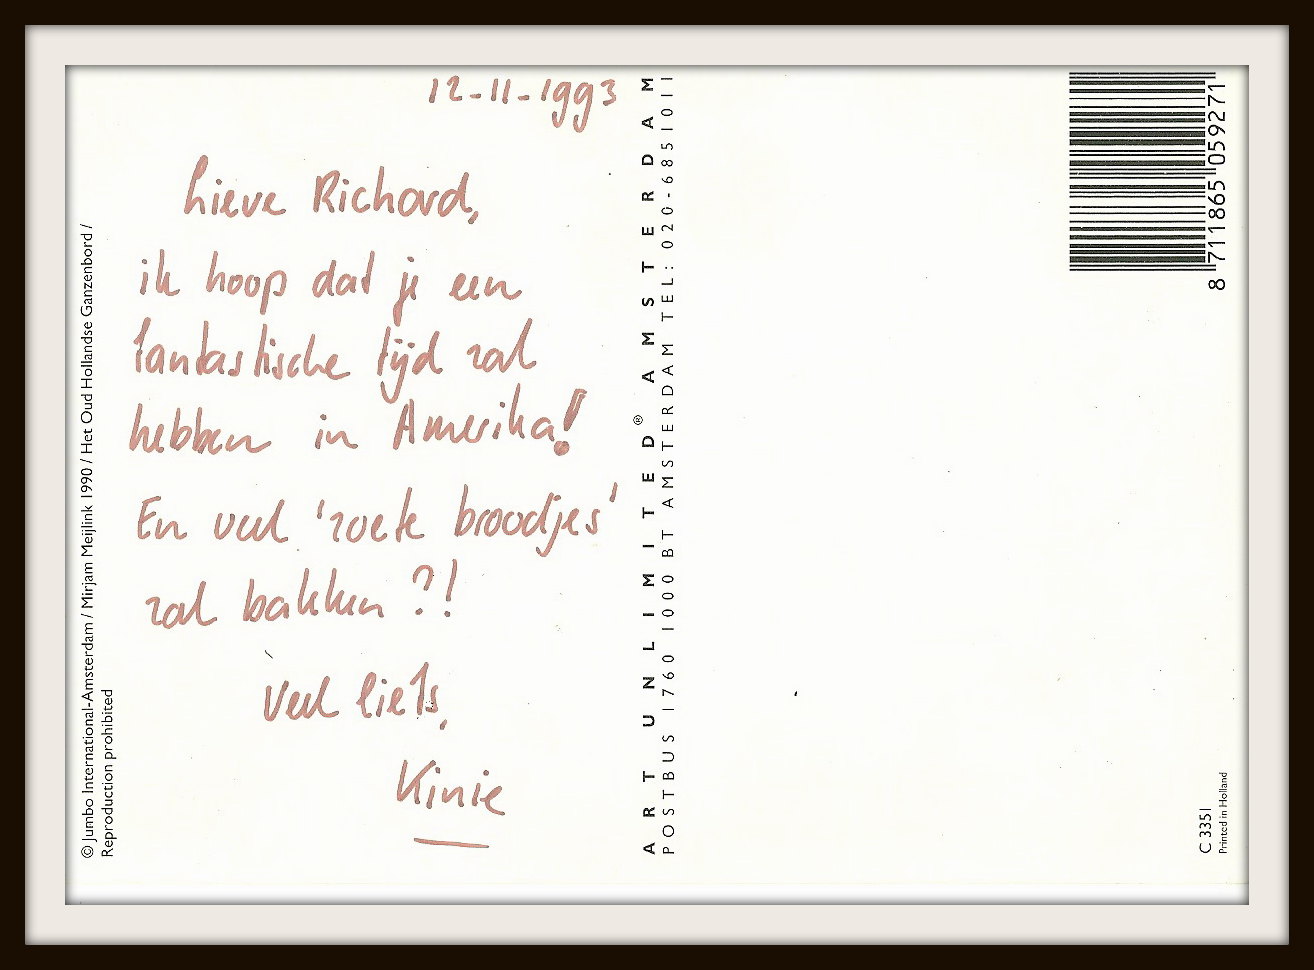 12-11-1993
Lieve Richard,
ik hoop dat je een
fantastische tijd zal
hebben in Amerika!
En veel 'zoete broodjes'
zal bakken ?!
Veel liefs,
Kinie
© Jumbo International-Amsterdam / Mirjam Meijlink 1990 / Het Oud Hollandse Ganzenbord /
Reproduction prohibited
ART UNLIMITED® AMSTERDAM
POSTBUS 1760 1000 BT AMSTERDAM TEL: 020-6851011
8 711865 059271
C 3351
Printed in Holland